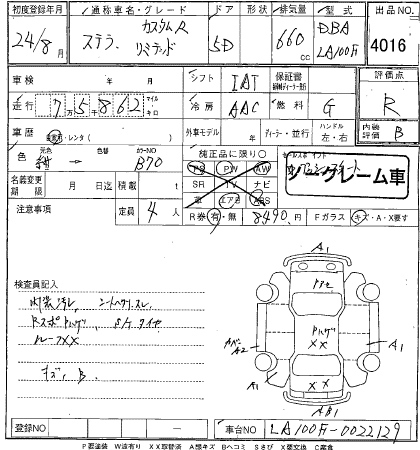 初度登録年月 通称車名・グレード ドア 形状 排気量 型式 出品NO
24/8月 ステラ カスタムR リミテッド 5D 660cc DBA LA100F 4016
車検 年 月 シフト IAT 保証書 評価点
走行 7万5862 マイル キロ 冷房 AAC 燃料 G R
車歴 自家用・レンタ 外車モデル 年 ディーラー・並行 ハンドル 左・右 内装 B
色 元色 紺 色替 カラーNO B70 純正品に限り○ セールスポイント
PS PW AW
名義変更期限 月 日迄 積載 t SR TV ナビ ノークレーム車
車 エアB ABS
注意事項 定員 4人 R券 有・無 8490円 Fガラス キズ・A・X要す
検査員記入
内装汚レ シートヘタリ スレ
RスポPハゲ S/Tタイヤ
ルーフXX
キズ、B
A1
Pハゲ
XX
A2 A1
A1 XX
AB1
登録NO ― 車台NO LA100F-0022129
P要塗装 W波有り XX取替済 A線キズ Bヘコミ Sさび X要交換 C腐食